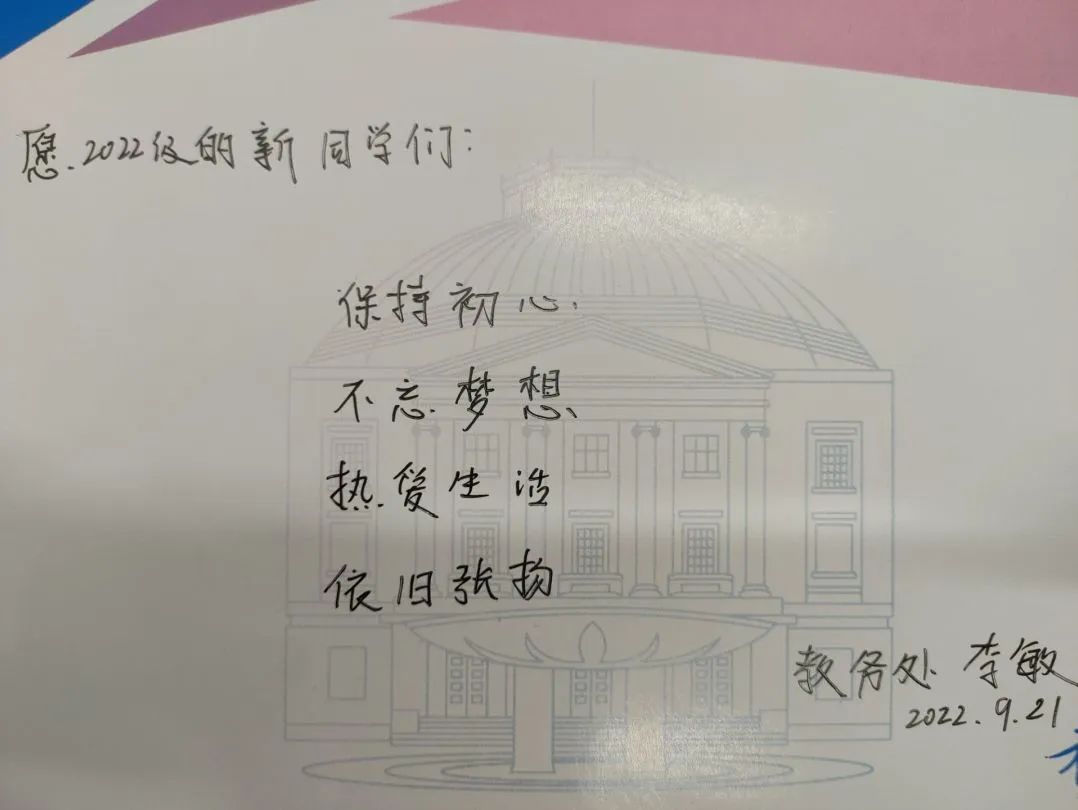 愿2022级的新同学们:
保持初心.
不忘梦想、
热爱生活
依旧张扬
教务处 李敏
2022.9.21